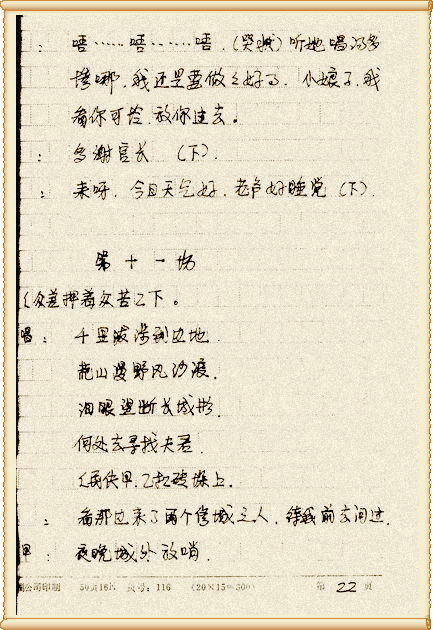 ：唔……唔……唔，(哭城) 听她唱得多
惨哪，我还是要做么好了，小娘子，我
看你可怜，放你过去。
：多谢官长 (下)。
：来呀，今日天气好，老爷好睡觉 (下)。
第十一场
(众差押着众苦工下。
唱：千里跋涉到边地，
荒山漫野风沙渡，
泪眼望断长城形，
何处去寻找夫君，
(两伕甲、乙
：看那边来了两个修城之人，待我前去问过，
甲：夜晚城外放哨，
公司印制 50页16K 页号：116 (20×15=300) 第 22 页